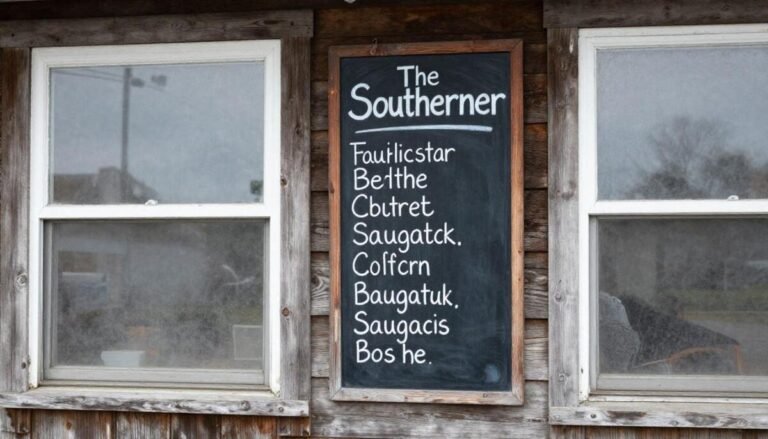 The
Southerner
Fautlicstar
Bethe
Cbutret
Saugatck.
Colfcrn
Baugatuk.
Saugacis
Bos he.